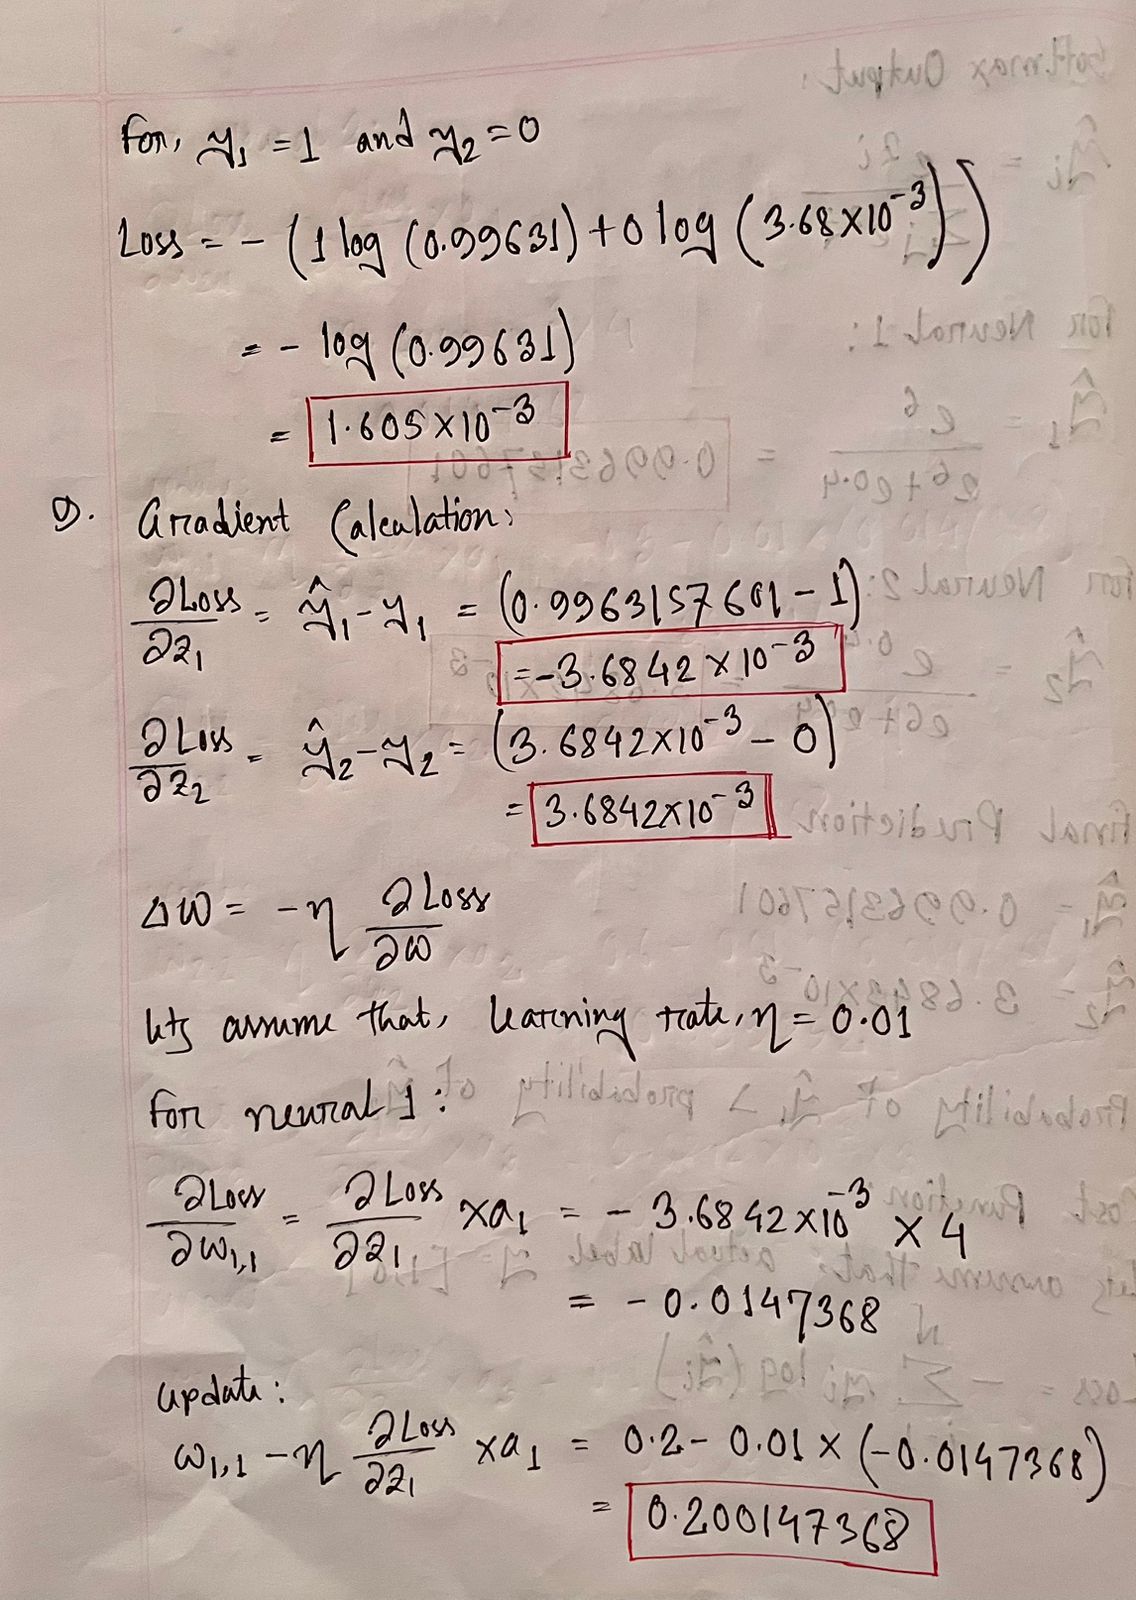 For, y₁ = 1 and y₂ = 0
Loss = - (1 log (0.99631) + 0 log (3.68×10⁻³))
= - log (0.99631)
= 1.605×10⁻³
9. Gradient Calculation:
∂Loss/∂z₁ = ŷ₁ - y₁ = (0.9963157601 - 1)
= -3.6842 × 10⁻³
∂Loss/∂z₂ = ŷ₂ - y₂ = (3.6842×10⁻³ - 0)
= 3.6842×10⁻³
Δω = -η ∂Loss/∂ω
lets assume that, learning rate, η = 0.01
For neural 1:
∂Loss/∂ω₁,₁ = ∂Loss/∂z₁ × a₁ = - 3.6842×10⁻³ × 4
= - 0.0147368
update:
ω₁,₁ - η ∂Loss/∂z₁ × a₁ = 0.2 - 0.01 × (-0.0147368)
= 0.200147368